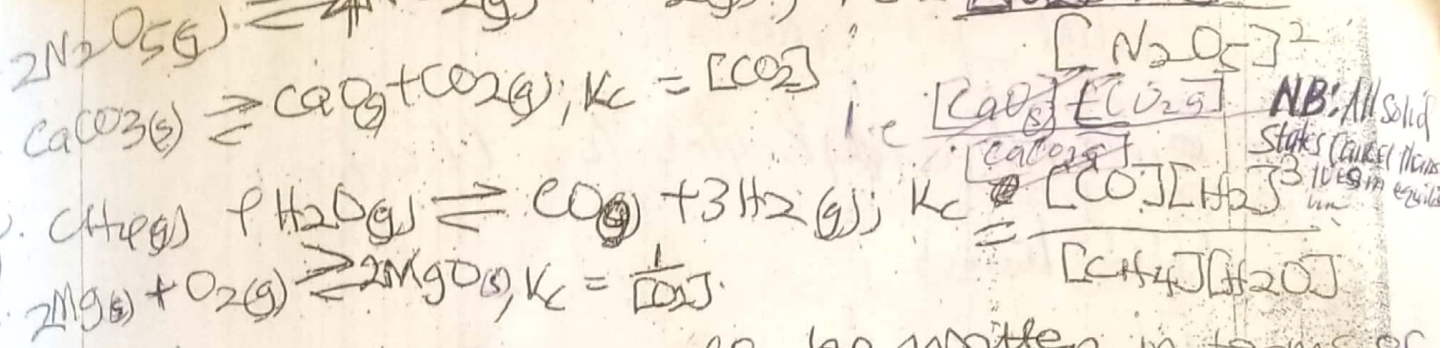 2N2O5(g) ⇌
[N2O5]²
CaCO3(s) ⇌ CaOg + CO2(g); Kc = [CO2]
i.e [CaO(s)] [CO2g]
NB: All solid
States cancel thems
lves in equili
CH4(g) + H2O(g) ⇌ CO(g) + 3H2(g); Kc = [CO][H2]³
[CH4][H2O]
2Mg(s) + O2(g) ⇌ 2MgO(s), Kc = 1/[O2].
written in terms of